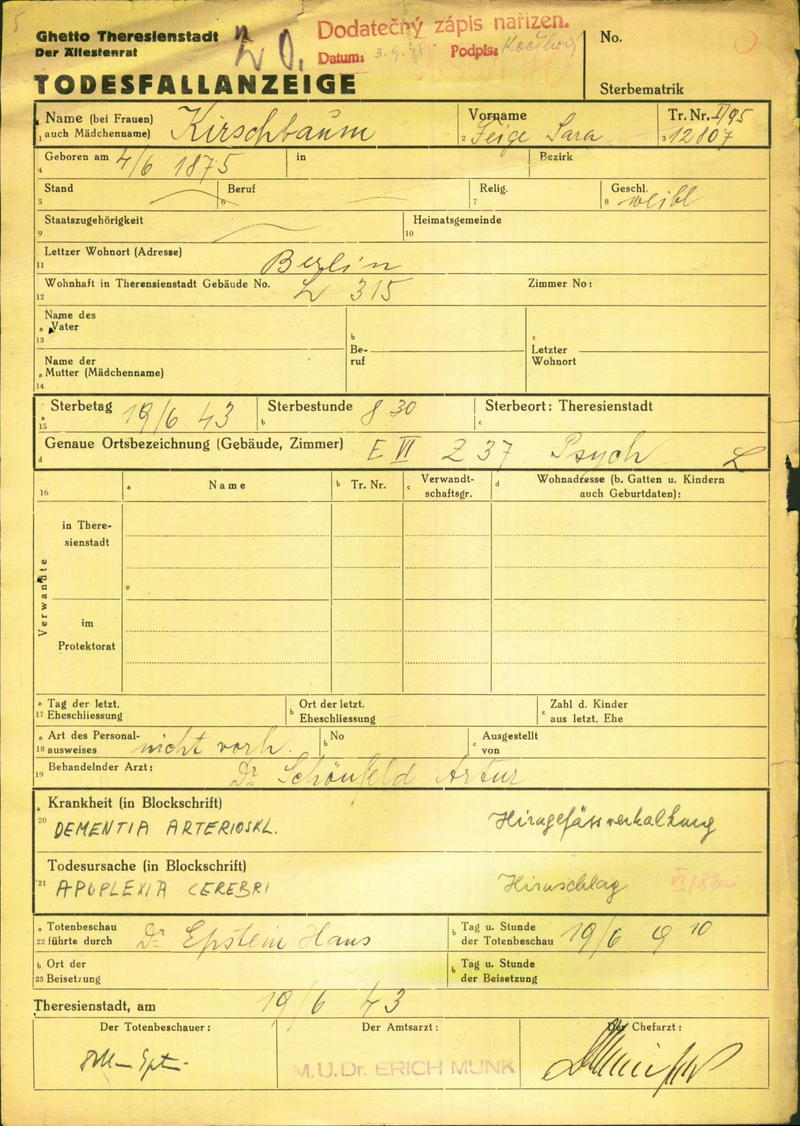 Ghetto Theresienstadt
Der Ältestenrat
Dodatečný zápis nařízen.
Datum: 3.9.48 Podpis:
No.
TODESFALLANZEIGE
Sterbematrik
Name (bei Frauen) Kirschbaum
1 auch Mädchenname)
Vorname
2 Feige Sara
Tr. Nr. I/95
3 12807
Geboren am 4/6 1875 in Bezirk
4
Stand Beruf Relig. Geschl.
5 6 7 8 weibl
Staatszugehörigkeit Heimatsgemeinde
9 10
Lettzer Wohnort (Adresse)
11 Berlin
Wohnhaft in Therensienstadt Gebäude No. L 315 Zimmer No:
12
Name des
a Vater
13
b
Be-
ruf
c
Letzter
Wohnort
Name der
a Mutter (Mädchenname)
14
Sterbetag 19/6 43 Sterbestunde 8 30 Sterbeort: Theresienstadt
a b c
15
Genaue Ortsbezeichnung (Gebäude, Zimmer) E VI Z 37 Psych L
d
16 a Name b Tr. Nr. c Verwandt-
schaftsgr. d Wohnadresse (b. Gatten u. Kindern
auch Geburtdaten):
Verwandte
in There-
sienstadt
im
Protektorat
a Tag der letzt.
17 Eheschliessung
b Ort der letzt.
Eheschliessung
c Zahl d. Kinder
aus letzt. Ehe
a Art des Personal-
18 ausweises nicht vorh.
b No
c Ausgestellt
von
Behandelnder Arzt:
19 Dr Schönfeld Artur
Krankheit (in Blockschrift)
20 DEMENTIA ARTERIOSKL. Hirngefässverkalkung
Todesursache (in Blockschrift)
21 APOPLEXIA CEREBRI Hirnschlag
a Totenbeschau
22 führte durch Dr Epstein Hans
b Tag u. Stunde
der Totenbeschau 19/6 9 10
b Ort der
23 Beisetzung
b Tag u. Stunde
der Beisetzung
Theresienstadt, am 19/6 43
Der Totenbeschauer: Der Amtsarzt: Der Chefarzt:
M.U.Dr. ERICH MUNK